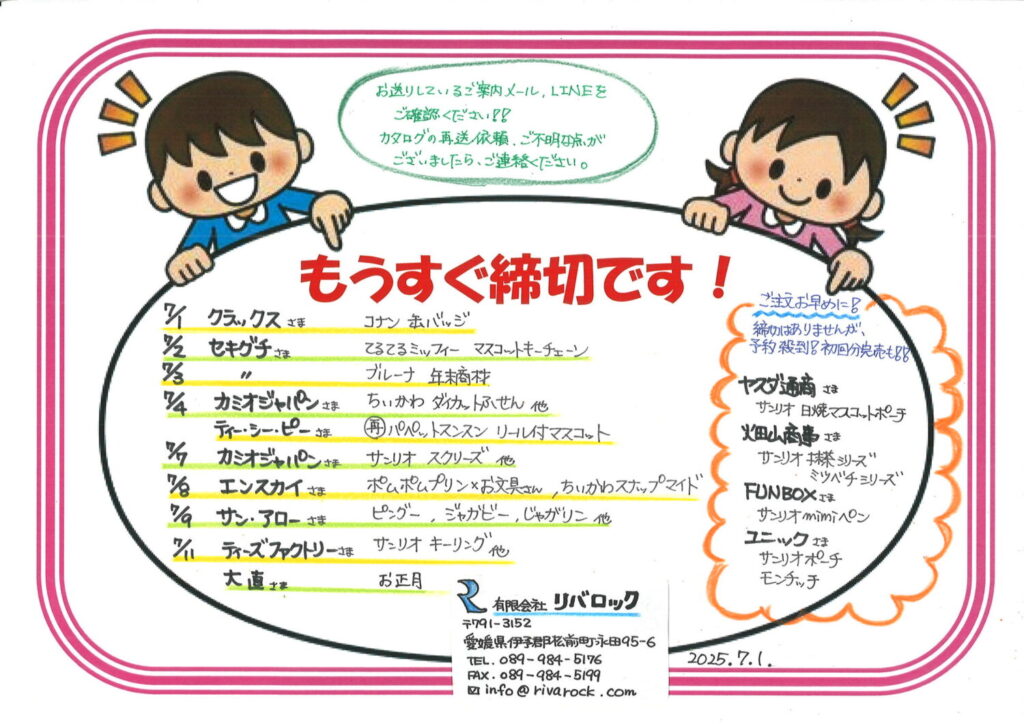 お送りしているご案内メール、LINEを
ご確認ください!!
カタログの再送依頼、ご不明な点が
ございましたら、ご連絡ください。
もうすぐ締切です!
7/1 クラックスさま コナン 缶バッジ
7/2 セキグチさま てるてるミッフィー マスコットキーチェーン
7/3 〃 ブルーナ 年末商材
7/4 カミオジャパンさま ちいかわ ダイカットふせん 他
ティー・シー・ピーさま 再パペットスンスン リール付マスコット
7/7 カミオジャパンさま サンリオ スクリーズ 他
7/8 エンスカイさま ポムポムプリン×お文具さん、ちいかわスナップマイド
7/9 サン・アローさま ピングー、ジャガビー、じゃがリン 他
7/11 ティーズファクトリーさま サンリオ キーリング 他
大直さま お正月
ご注文お早めに!
締切はありませんが、
予約殺到!初回分完売も!!
ヤスダ通商さま
サンリオ 日焼マスコットポーチ
火田山商事さま
サンリオ 抹茶シリーズ
ミツバチシリーズ
FUNBOXさま
サンリオmimiペン
ユニックさま
サンリオポーチ
モンチッチ
有限会社 リバロック
〒791-3152
愛媛県伊予郡松前町永田95-6
TEL. 089-984-5176
FAX. 089-984-5199
info@rivarock.com
2025.7.1.